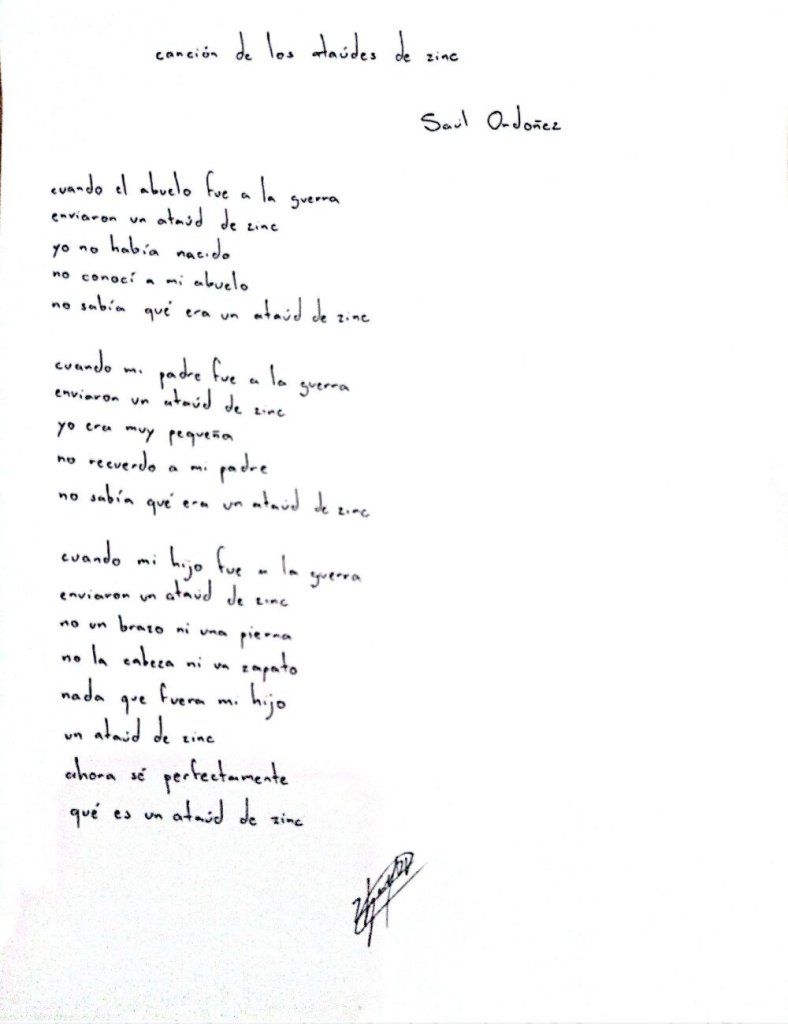 canción de los ataúdes de zinc
Saúl Ordoñez
cuando el abuelo fue a la guerra
enviaron un ataúd de zinc
yo no había nacido
no conocí a mi abuelo
no sabía qué era un ataúd de zinc
cuando mi padre fue a la guerra
enviaron un ataúd de zinc
yo era muy pequeña
no recuerdo a mi padre
no sabía qué era un ataúd de zinc
cuando mi hijo fue a la guerra
enviaron un ataúd de zinc
no un brazo ni una pierna
no la cabeza ni un zapato
nada que fuera mi hijo
un ataúd de zinc
ahora sé perfectamente
qué es un ataúd de zinc